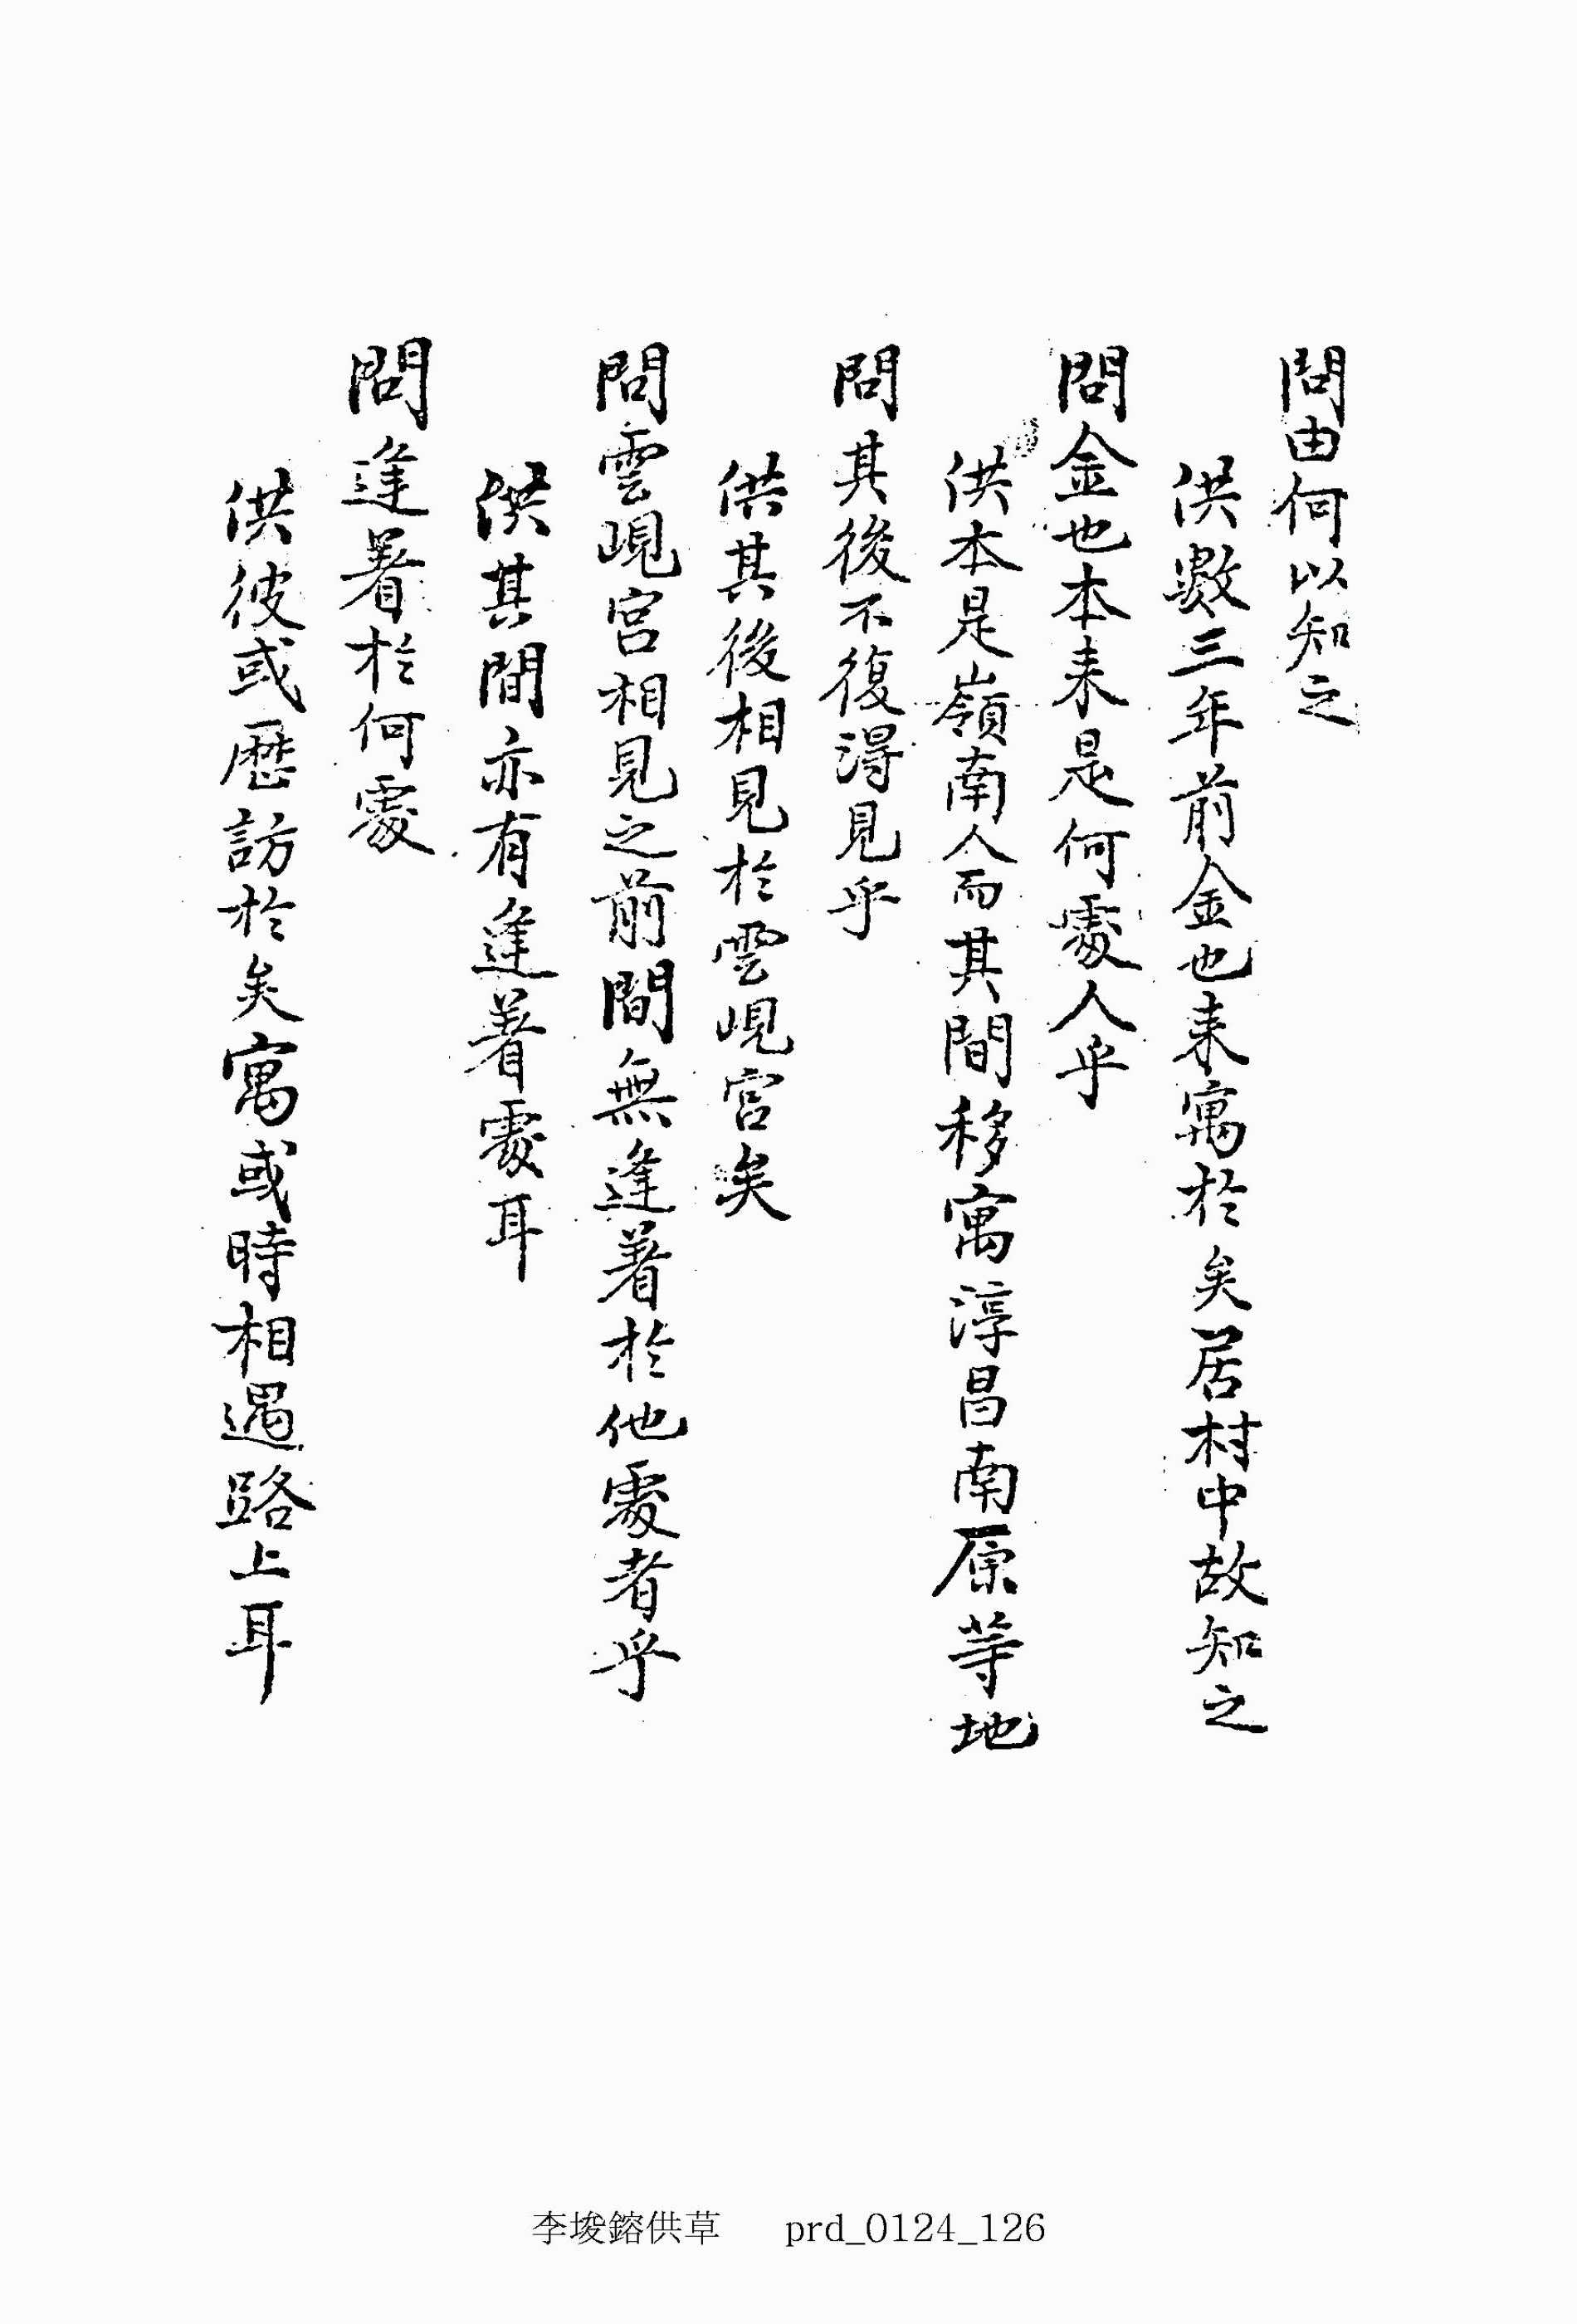 問由何以知之
供數三年前金也来寓於矣居村中故知之
問金也本来是何處人乎
供本是嶺南人而其間移寓淳昌南原等地
問其後不復得見乎
供其後相見於雲峴宮矣
問雲峴宮相見之前間無逢著於他處者乎
供其間亦有逢著處耳
問逢著於何處
供彼或歷訪於矣寓或時相遇路上耳
李埈鎔供草 prd_0124_126